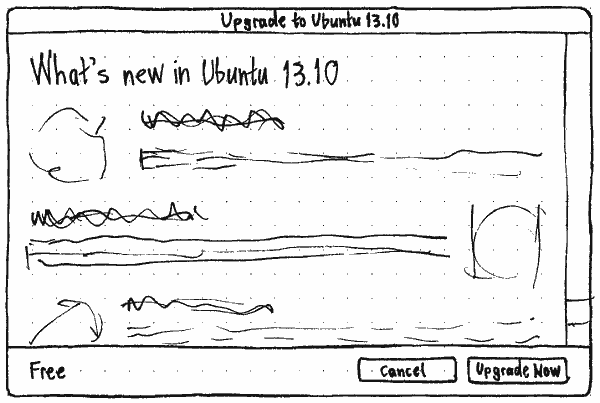 Upgrade to Ubuntu 13.10
What's new in Ubuntu 13.10
Free
Cancel
Upgrade Now